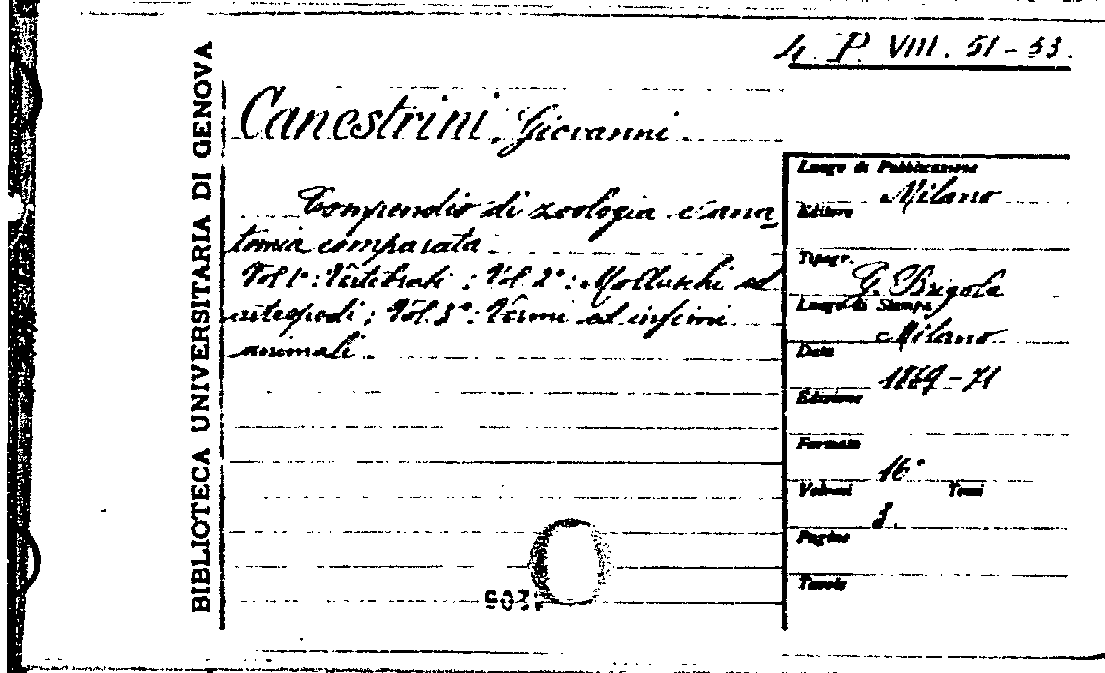 4. P. VIII. 51-53.
BIBLIOTECA UNIVERSITARIA DI GENOVA
Canestrini, Giovanni
Compendio di zoologia e ana
tomia comparata.
Vol 1º: Vertebrati; Vol. 2º: Molluschi ed
artropodi; Vol. 3º: Vermi ed infimi
animali.
Luogo di Pubblicazione
Milano
Editore
Tipogr.
G. Brigola
Luogo di Stampa
Milano
Data
1869-71
Edizione
Formato
16º
Volumi Tomi
3.
Pagine
Tavole